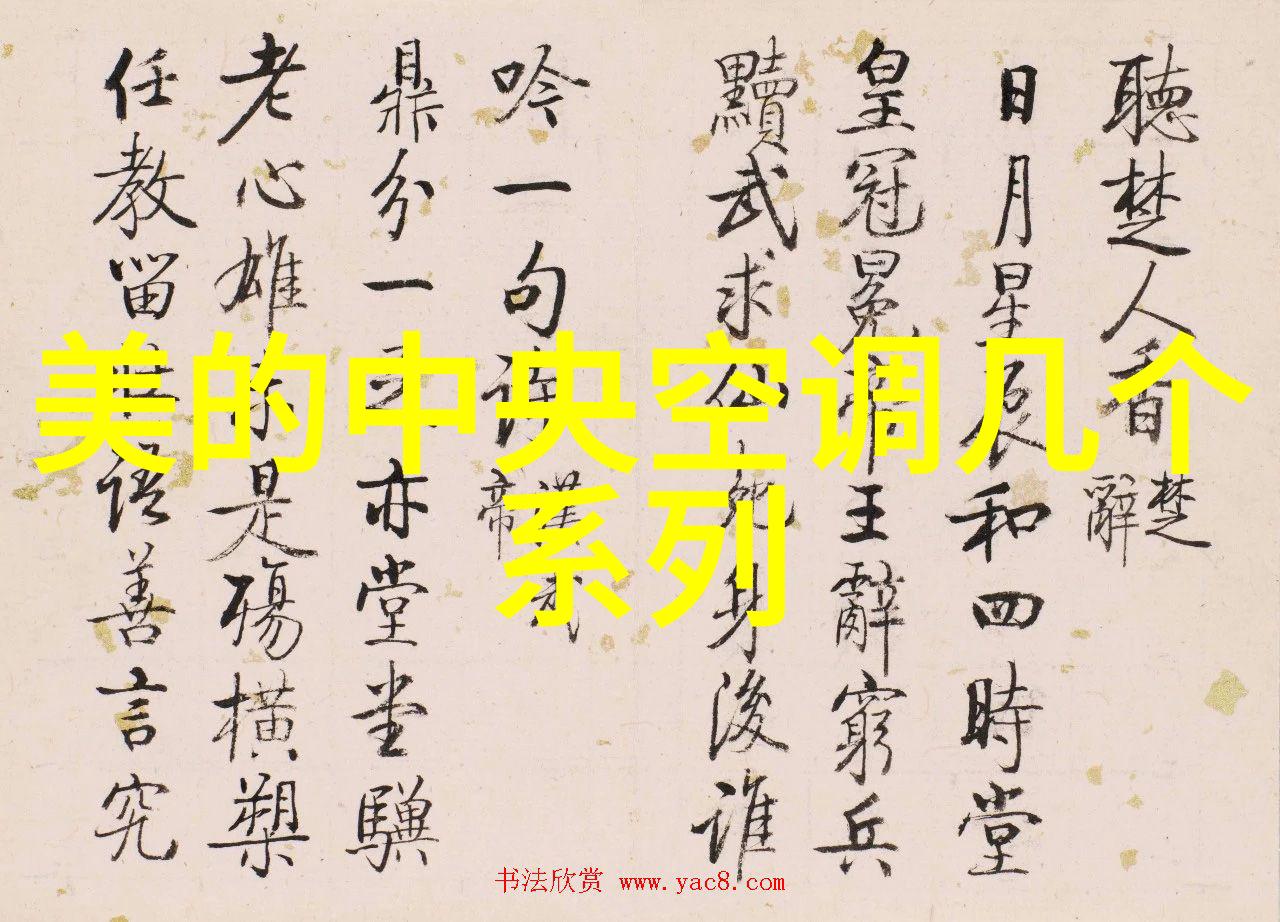 聽楚人香楚辭
日月星辰和四時堂
皇冠冕帝王辭窮兵
黷武求仙身後誰
吟一句許漢武帝
鼎分一亦堂堂驥
老心雄是殤橫槊
任教留語善言究
美的中央空调几个
系列
书法欣赏 www.yac8.com